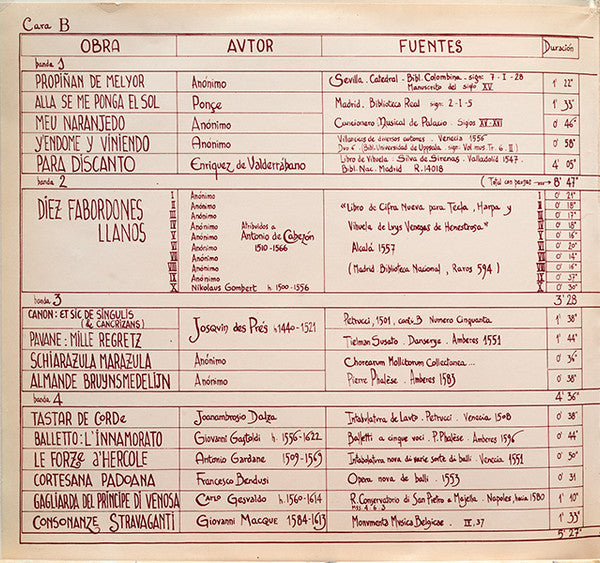 Cara B
OBRA AVTOR FUENTES Duración
banda 1
PROPIÑAN DE MELYOR Anónimo Sevilla. Catedral. Bibl. Colombina. sign: 7-I-28 1' 22"
Manuscrito del siglo XV
ALLA SE ME PONGA EL SOL Ponçe Madrid. Biblioteca Real sign: 2-I-5 1' 33"
MEU NARANJEDO Anónimo Cancionero Musical de Palacio. Siglos XV-XVI 0' 46"
YENDOME Y VINIENDO Anónimo Villancicos de diversos autores. Venecia 1556 0' 58"
Duo 6. (Bibl. Universidad de Uppsala. sign: Vol mus. Tr. 6. II)
PARA DISCANTO Enriquez de Valderrábano Libro de Vihuela. Silva de Sirenas. Valladolid 1547. 4' 05"
Bibl. Nac. Madrid R.14018
banda 2 (Total con pausas 8' 47"
DIEZ FABORDONES LLANOS
I Anónimo 0' 21"
II Anónimo 0' 18"
III Anónimo 0' 17"
IV Anónimo 0' 18"
V Anónimo 0' 16"
VI Anónimo 0' 20"
VII Anónimo 0' 14"
VIII Anónimo 0' 16"
IX Anónimo 0' 37"
X Nikolaus Gombert h. 1500-1556 0' 30"
Atribuidos a
Antonio de Cabezón
1510-1566
"Libro de Cifra Nueva para Tecla, Harpa y
Vihuela de Luys Venegas de Henestrosa"
Alcalá 1557
(Madrid Biblioteca Nacional, Raros 594)
banda 3 3' 28
CANON: ET SIC DE SINGULIS Josqvin des Prés h 1440-1521 Petrucci, 1501, Numero Cinquanta 1' 38"
(& CANCRIZANS)
PAVANE: MILLE REGRETZ Tielman Susato. Danserye. Amberes 1551 1' 44"
SCHIARAZULA MARAZULA Anónimo Chorearum Mollitorum Collectanea... 0' 36"
ALMANDE BRUYNSMEDELIJN Anónimo Pierre Phalèse. Amberes 1583 0' 38"
banda 4 4' 36"
TASTAR DE CORDE Joanambrosio Dalza Intabulatura de Lauto. Petrucci. Venecia 1508 0' 38"
BALLETTO: L'INNAMORATO Giovanni Gastoldi h. 1556-1622 Balletti a cinque voci. P. Phalèse. Amberes 1596 0' 44"
LE FORZE d'HERCOLE Antonio Gardane 1509-1569 Intabolatura nova di varie sorte di balli. Venecia 1551 0' 50"
CORTESANA PADOANA Francesco Bendusi Opera nova de balli. 1553 0' 31
GAGLIARDA DEL PRINCIPE DI VENOSA Carlo Gesvaldo h. 1560-1614 R. Conservatorio di San Pietro a Majella. Napoles, hacia 1580 1' 10"
Mss. 4.6.3
CONSONANZE STRAVAGANTI Giovanni Macque 1584-1613 Monvmenta Mvsica Belgicae. IV. 37 1' 33"
5' 27"